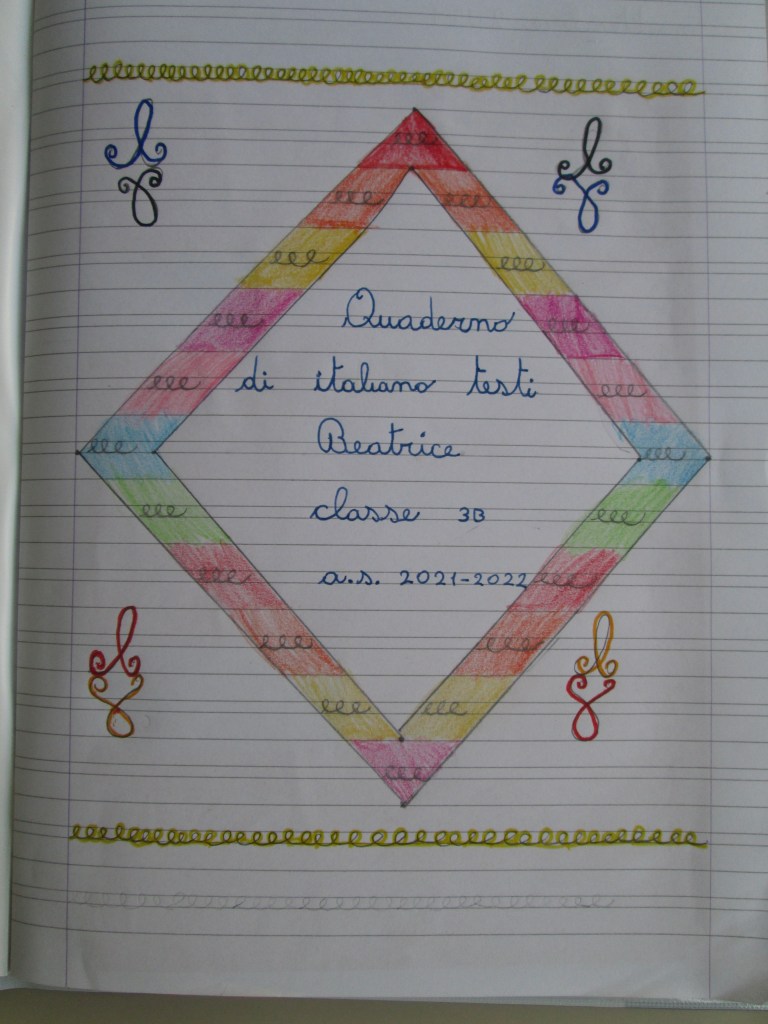 Quaderno
di italiano testi
Beatrice
classe 3B
a.s. 2021-2022